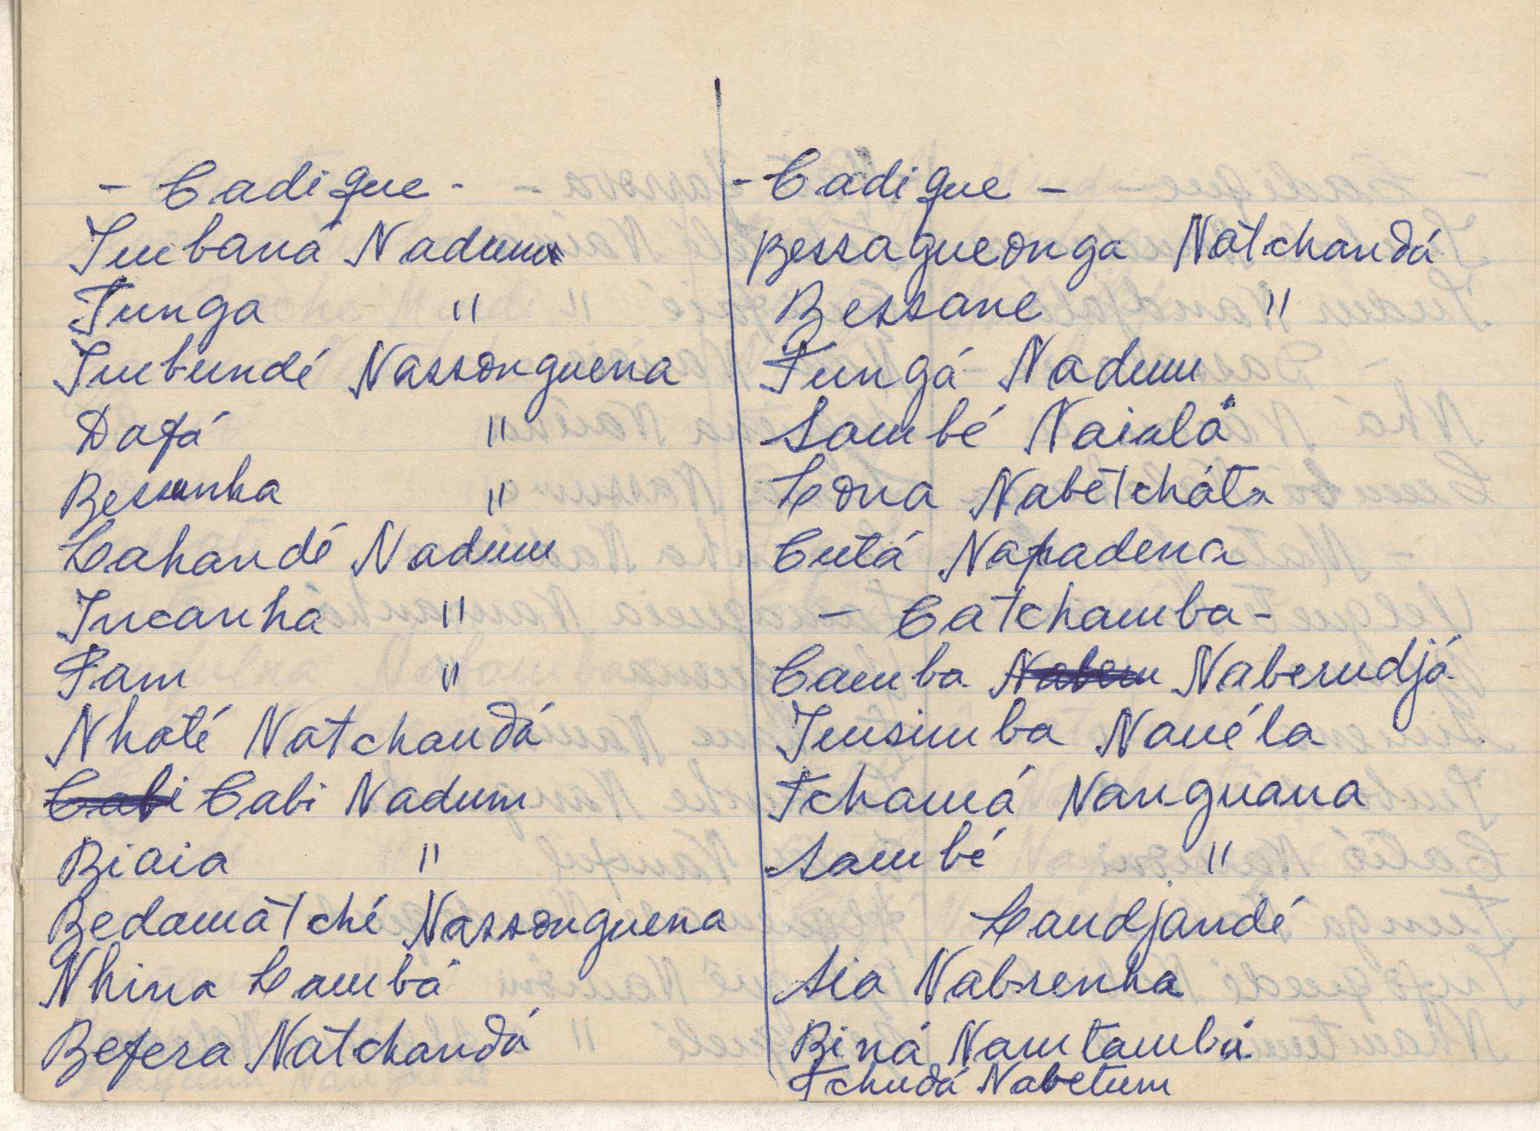 - Cadique -
Imbaná Nadum
Tunga "
Imbundé Nassonguena
Dafá "
Bessunha "
Cahandé Nadum
Incanha "
Fam "
Nhaté Natchandá
Cabi Cabi Nadum
Biaia "
Bedamatché Nassonguena
Nhina Cambá
Befera Natchandá
- Cadique -
Bessagueonga Natchandá
Bessane "
Tungá Nadum
Sambé Naialá
Cona Nabetcháta
Cutá Napadena
- Catchamba -
Camba Nabem Naberndjá
Imsimba Nauéla
Tchamá Nanguana
Sambé "
Candjandé
Sia Nabsenha
Biná Namtambá
Tchudá Nabetum